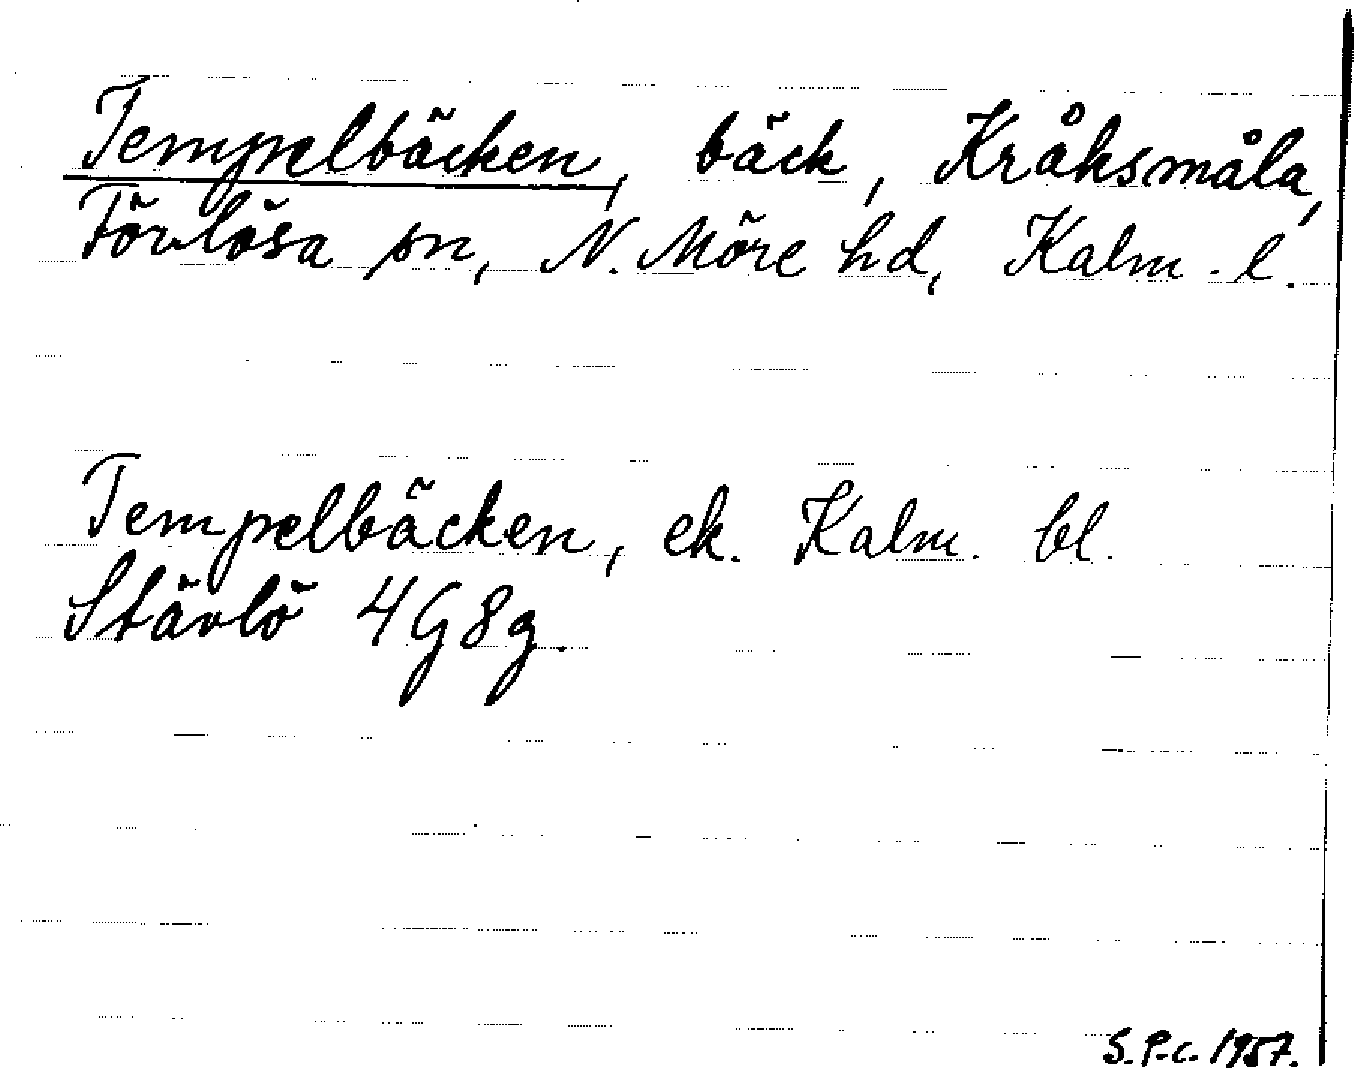 Tempelbäcken, bäck, Kråksmåla,
Förlösa sn, N. Möre hd, Kalm. l.
Tempelbäcken, ek. Kalm. bl.
Stävlö 4G8g.
S. P-c. 1957.